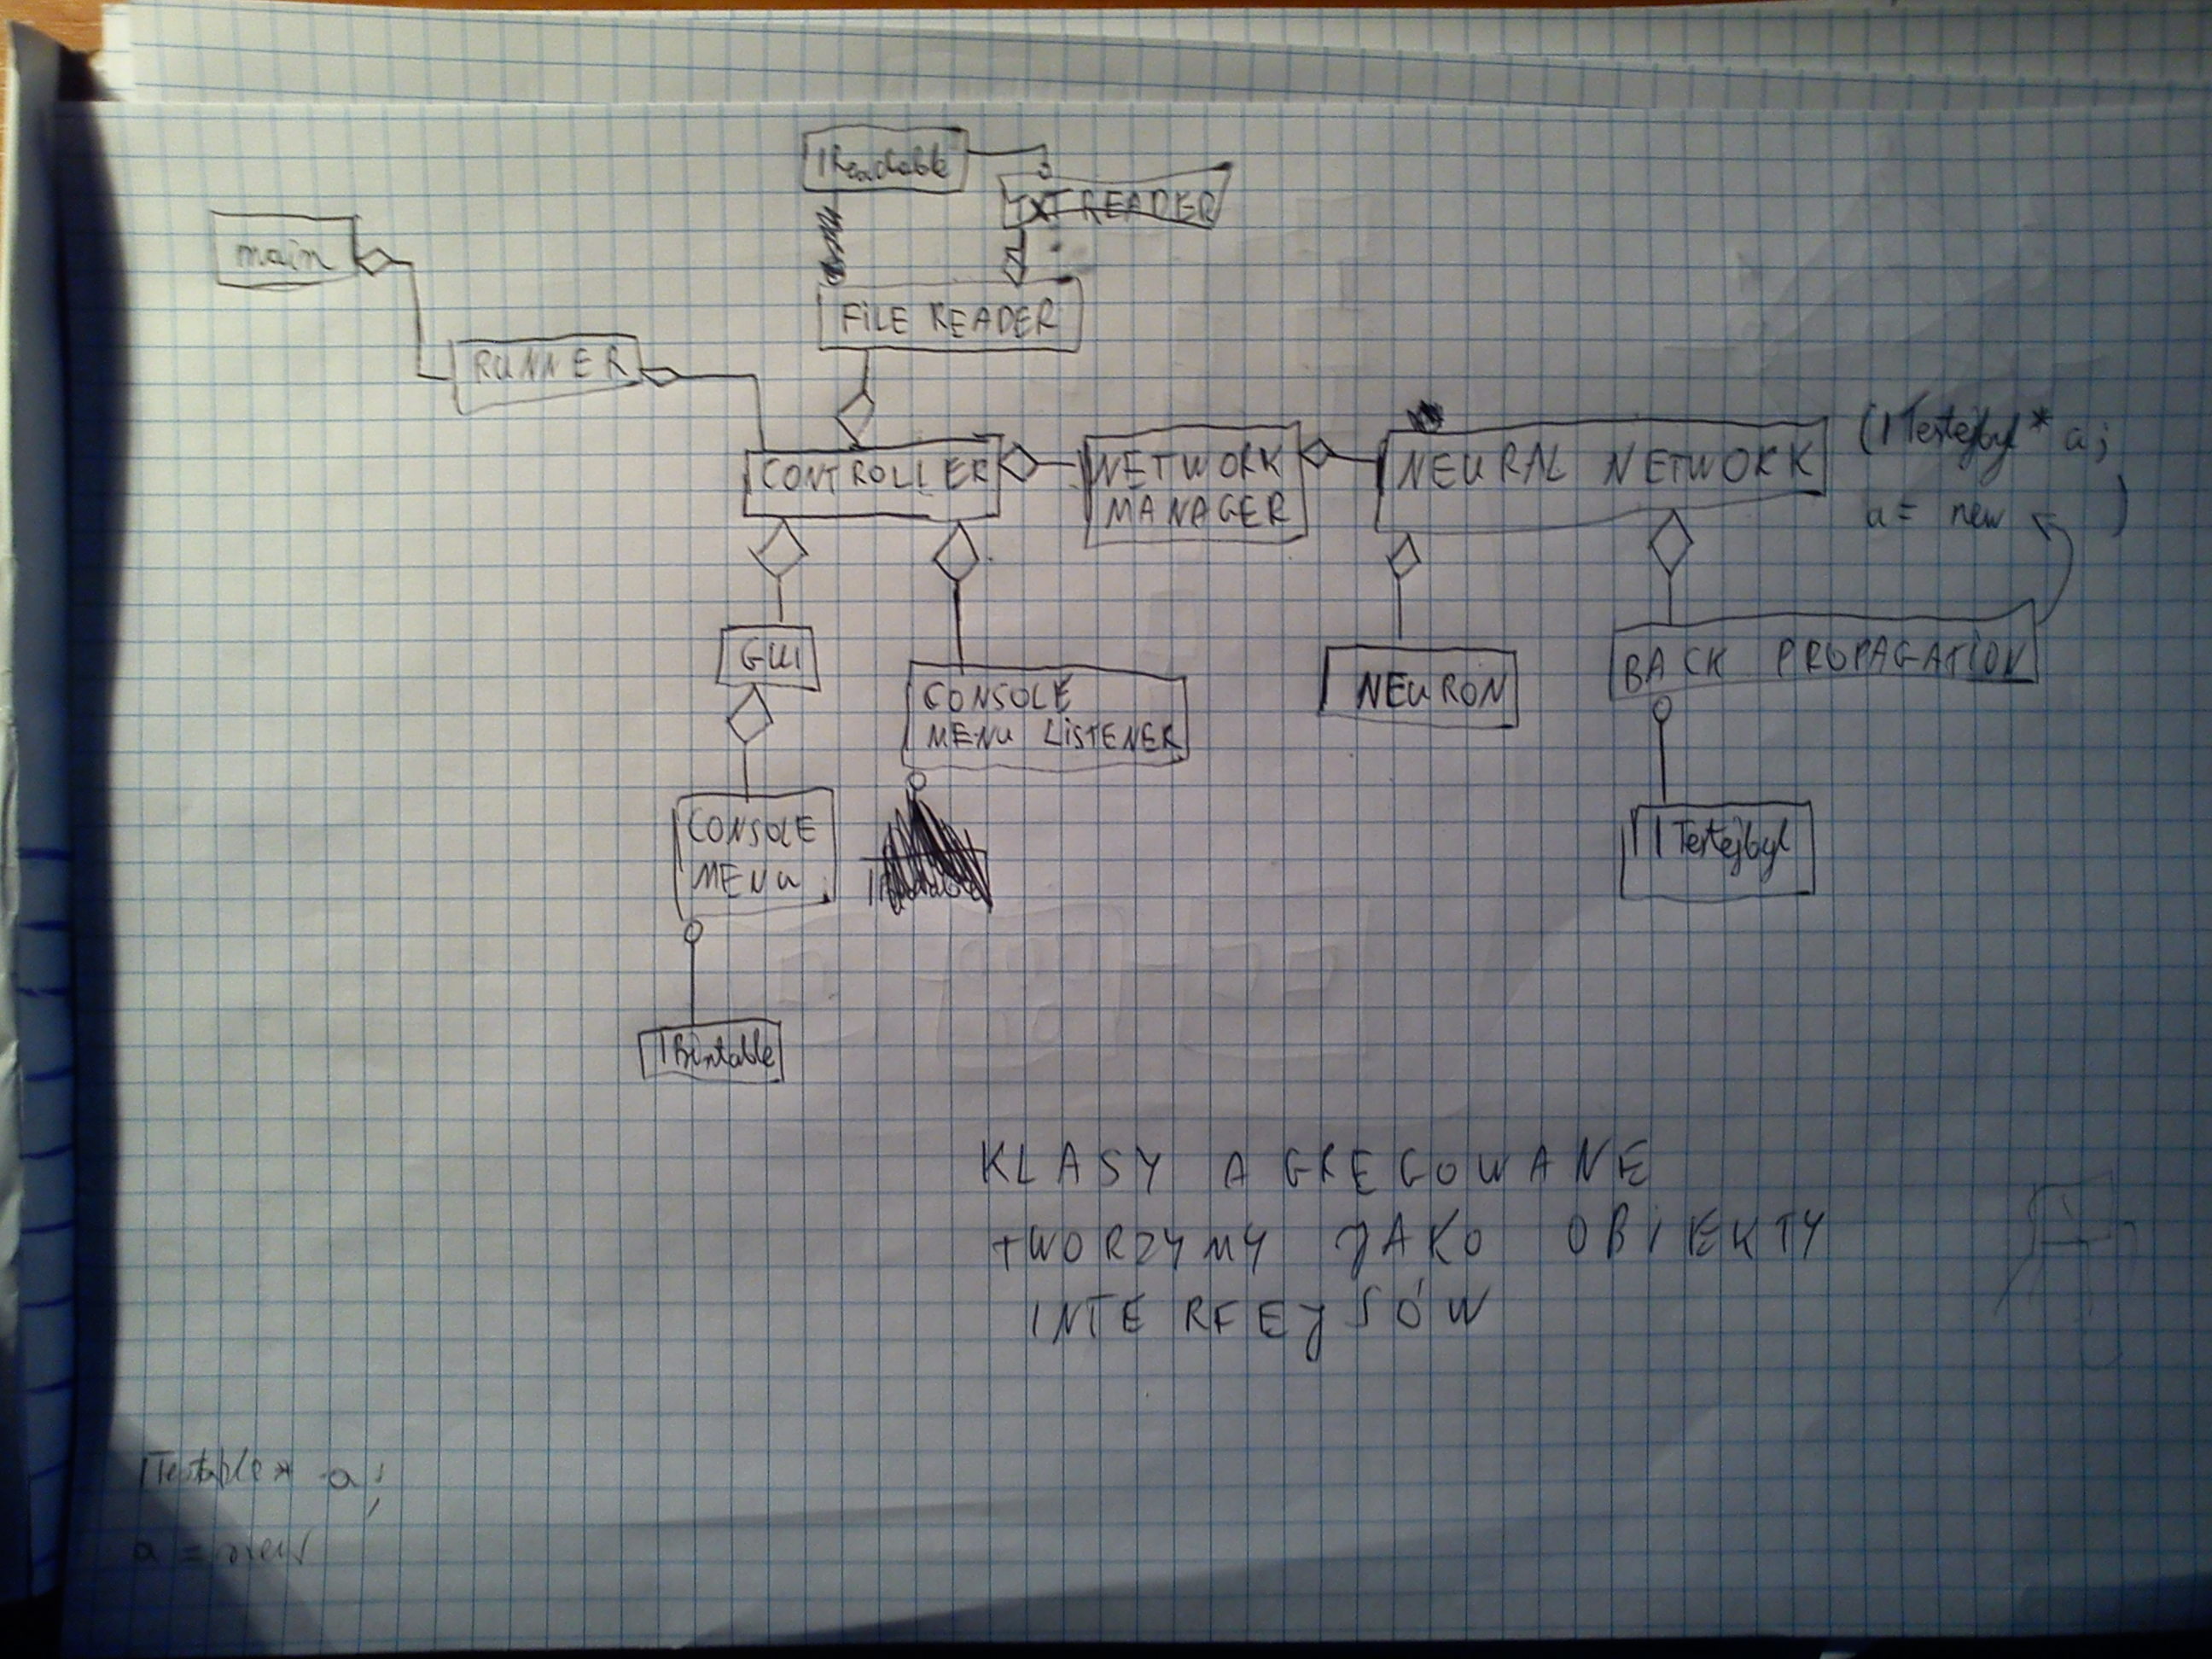 IReadable
TXT READER
main
FILE READER
RUNNER
CONTROLLER
NETWORK
MANAGER
NEURAL NETWORK
(ITestejbyl* a;
a = new )
GUI
CONSOLE
MENU LISTENER
NEURON
BACK PROPAGATION
CONSOLE
MENU
ITestejbyl
IPrintable
KLASY AGREGOWANE
TWORZYMY JAKO OBIEKTY
INTERFEJSÓW
ITestable* a;
a = new